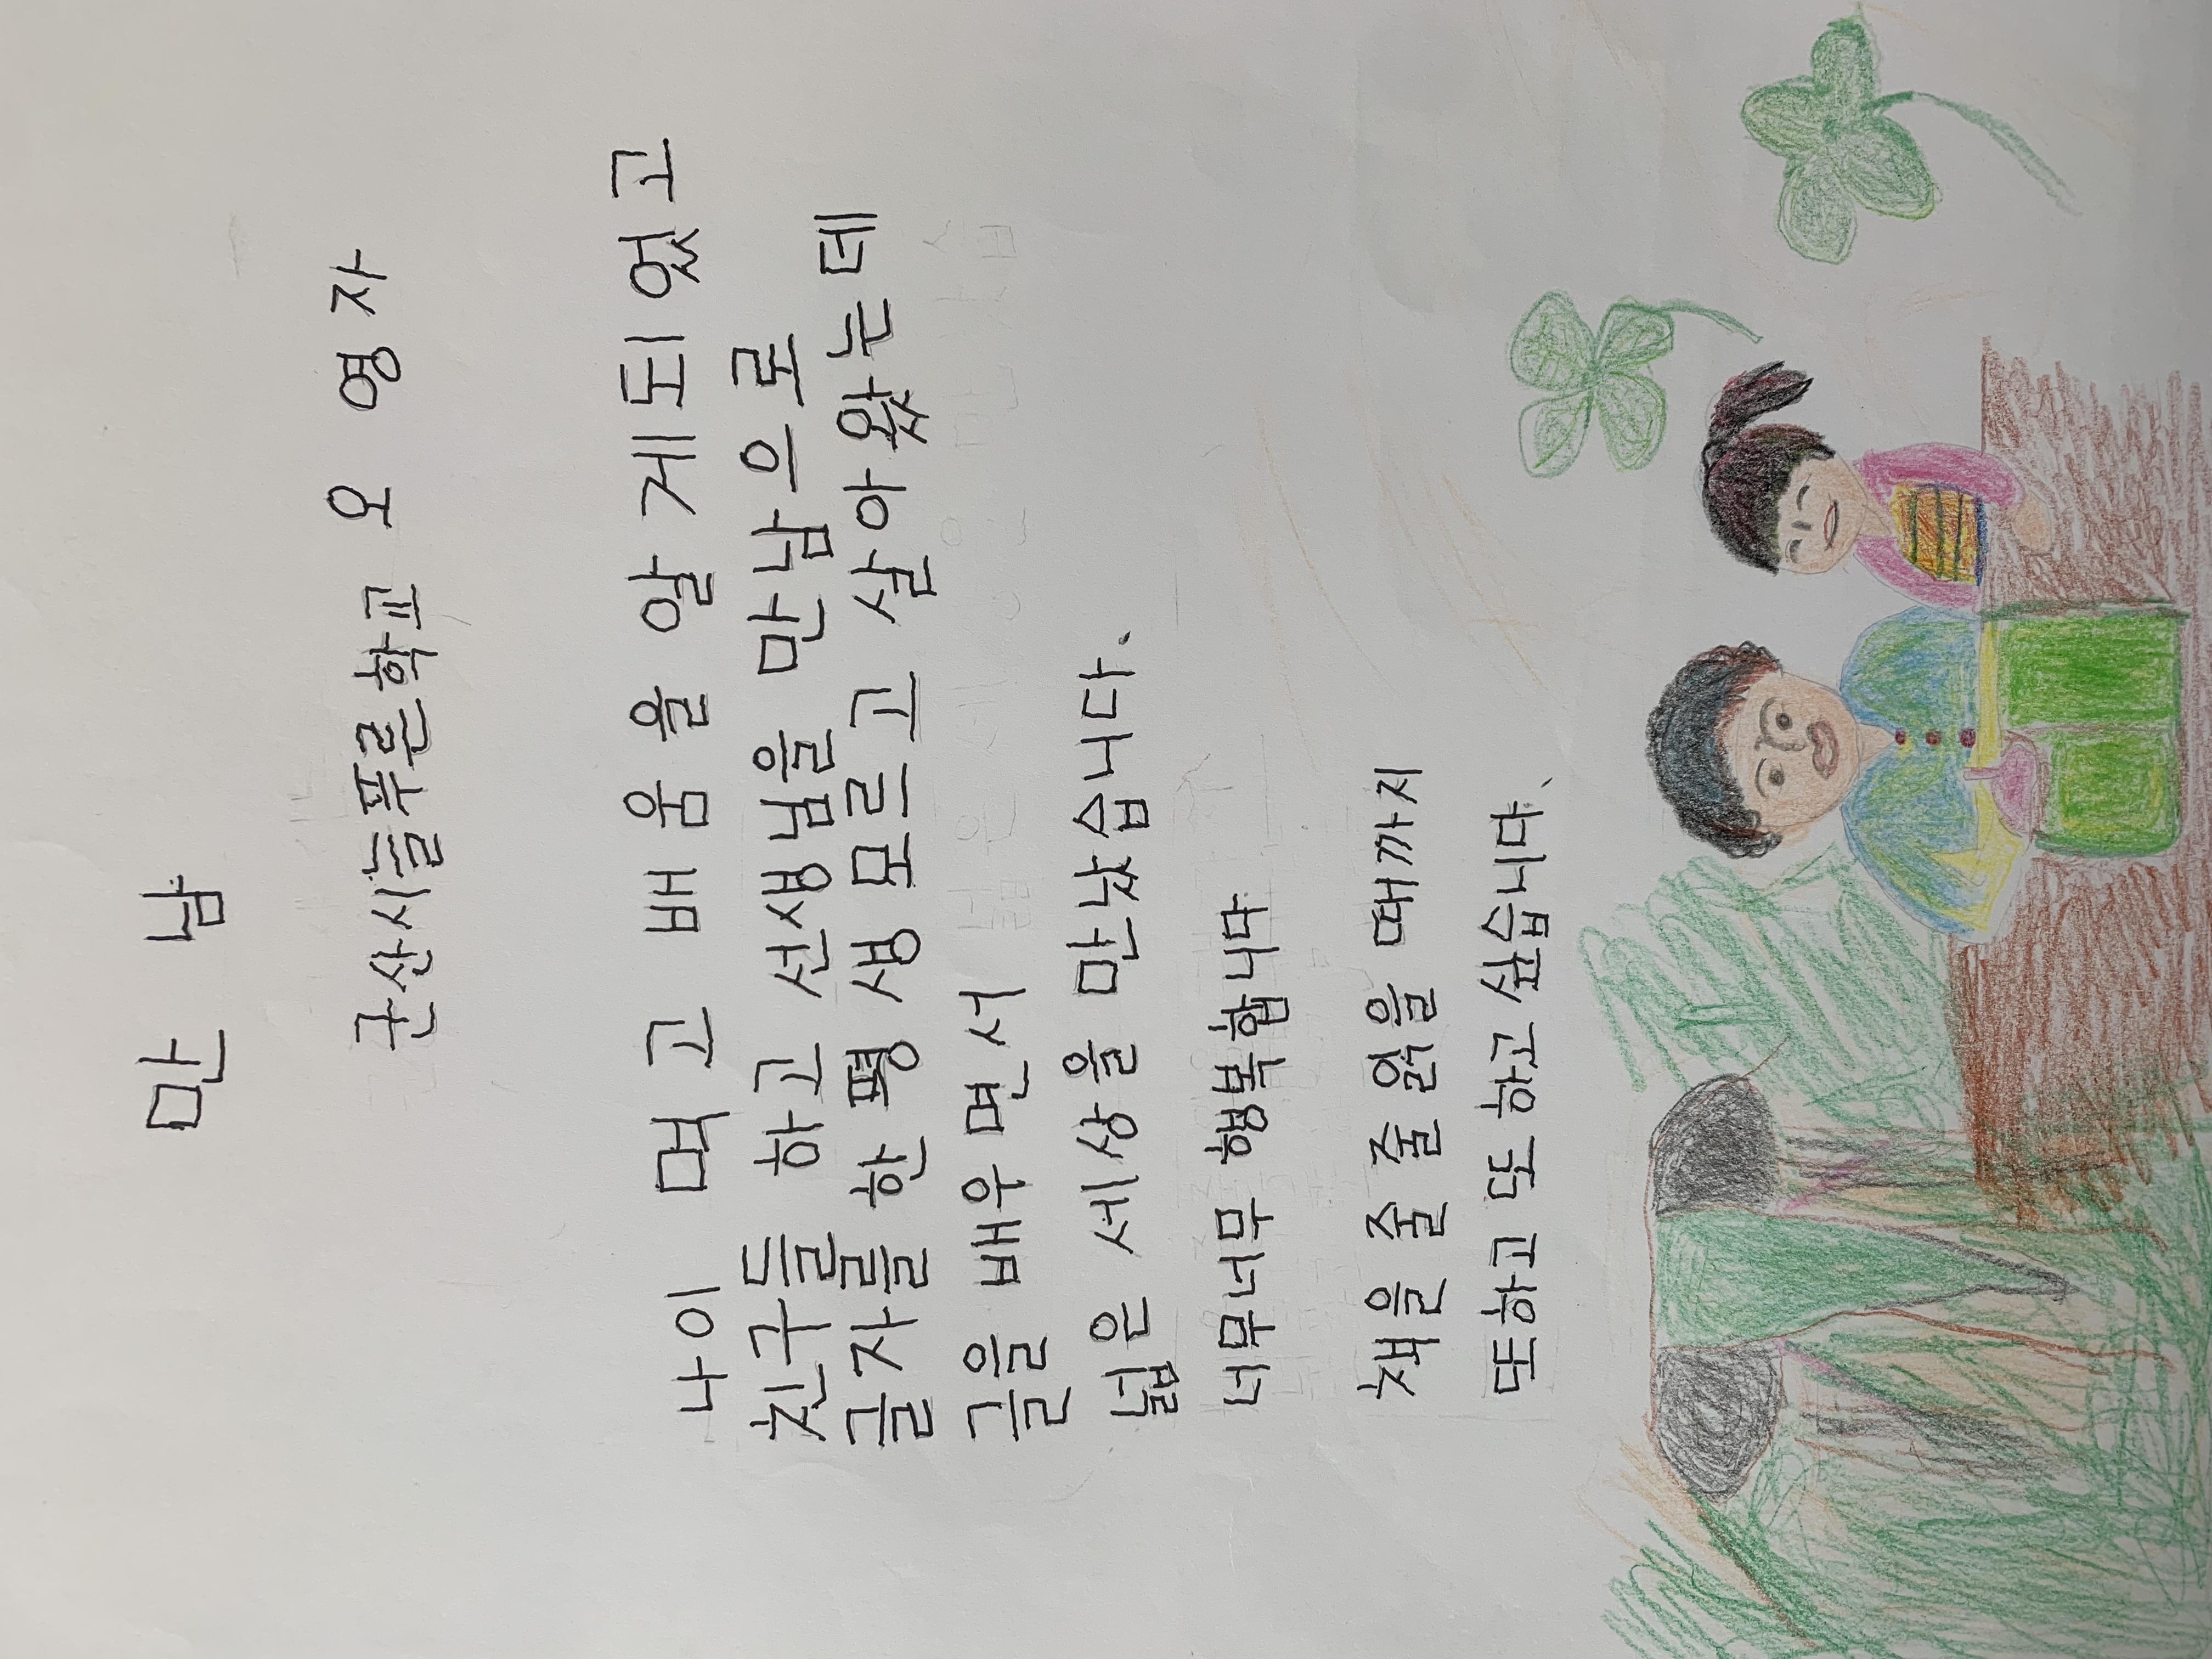 만 남
군산시늘푸른학교 오 영 자
나이 먹고 배움을 알게 되었고
친구들 하고 선생님을 만남으로
글자를 한 평생 모르고 살아 왔는데
글을 배우면서
넓은 세상을 만났습니다.
너무너무 행복합니다
책을 줄 줄 읽을 때까지
또하고 또 하고 싶습니다.